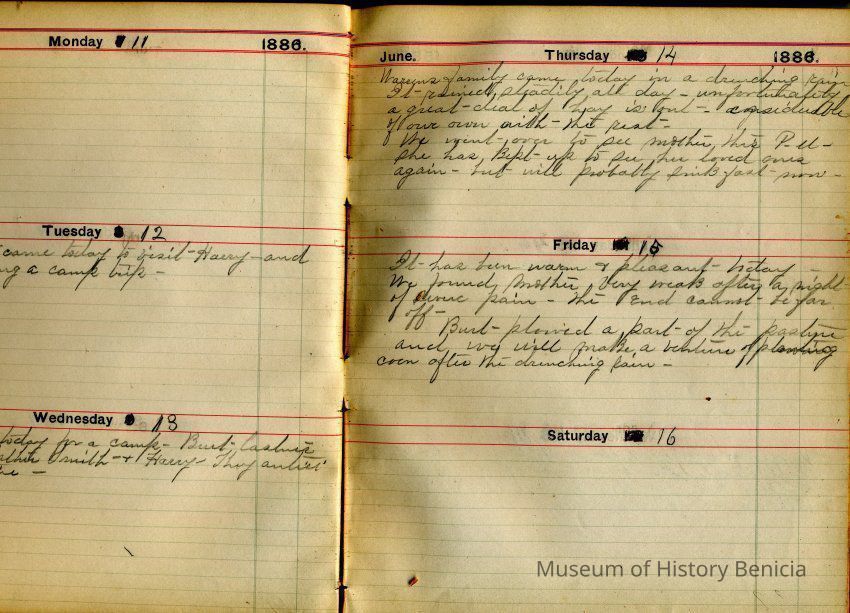 Monday 11 1886.
Tuesday 12
came today to visit - Harry - and
a camp trip -
Wednesday 13
today for a camp - Burt
Smith - & Harry - They
June. Thursday 14 1886.
Warrens family came today in a drenching rain
It - rained steadily all day - unfortunately
a great - deal of hay is out - considerable
of our own with - the rest -
We went over to see mother, this P - M -
she has kept - up to see her loved ones
again - but will probably sink fast - now -
Friday 15
It - has been warm & pleasant - today -
We found Mother very weak after a night
of severe pain - the End cannot - be far
off -
Burt - plowed a part - of the pasture
and we will make a venture of planting
corn after the drenching rain -
Saturday 16
Museum of History Benicia